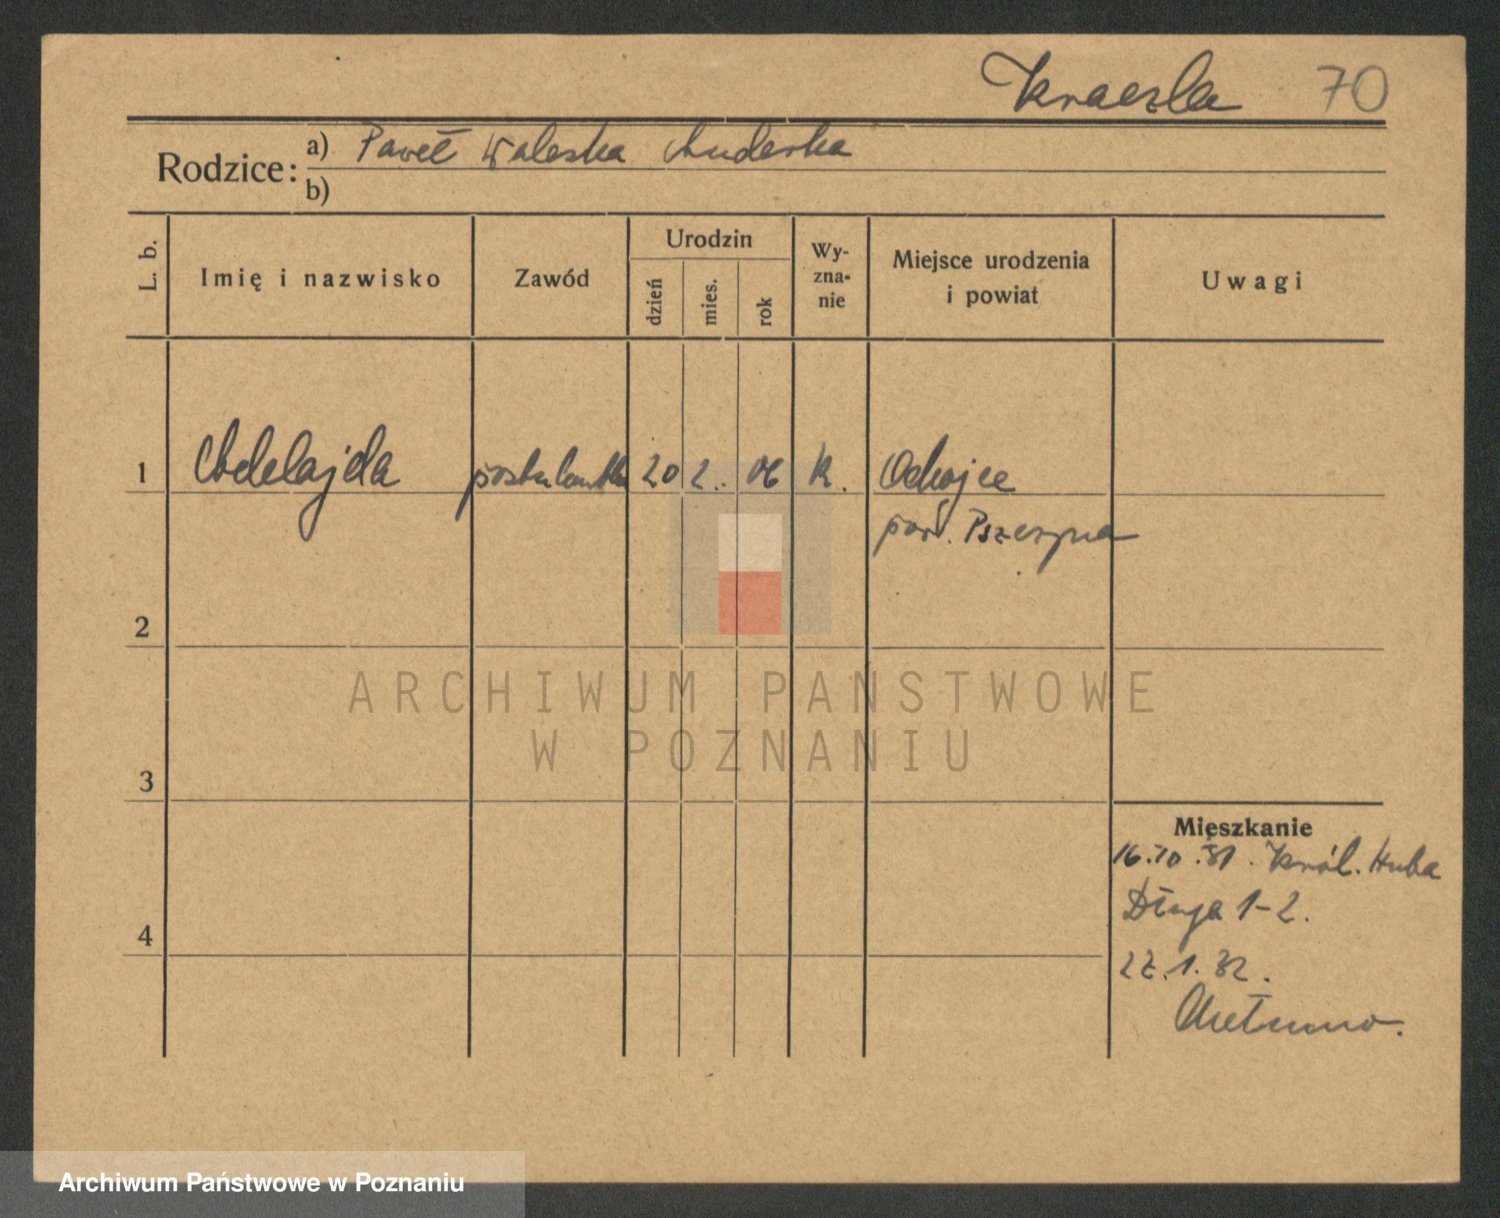 Kraczla 70
Rodzice: a) Paweł Waleska Anderka
b)
L. b.
Imię i nazwisko
Zawód
Urodzin
dzień
mies.
rok
Wy-
zna-
nie
Miejsce urodzenia
i powiat
Uwagi
1 Adelajda postulantka 20 2. 06 k. Ochojce
pow. Pszczyna
2
3
4
Mieszkanie
16.10.31. Król. Huba
Długa 1-2.
22.1.32.
Chełmno.
ARCHIWUM PAŃSTWOWE
W POZNANIU
Archiwum Państwowe w Poznaniu